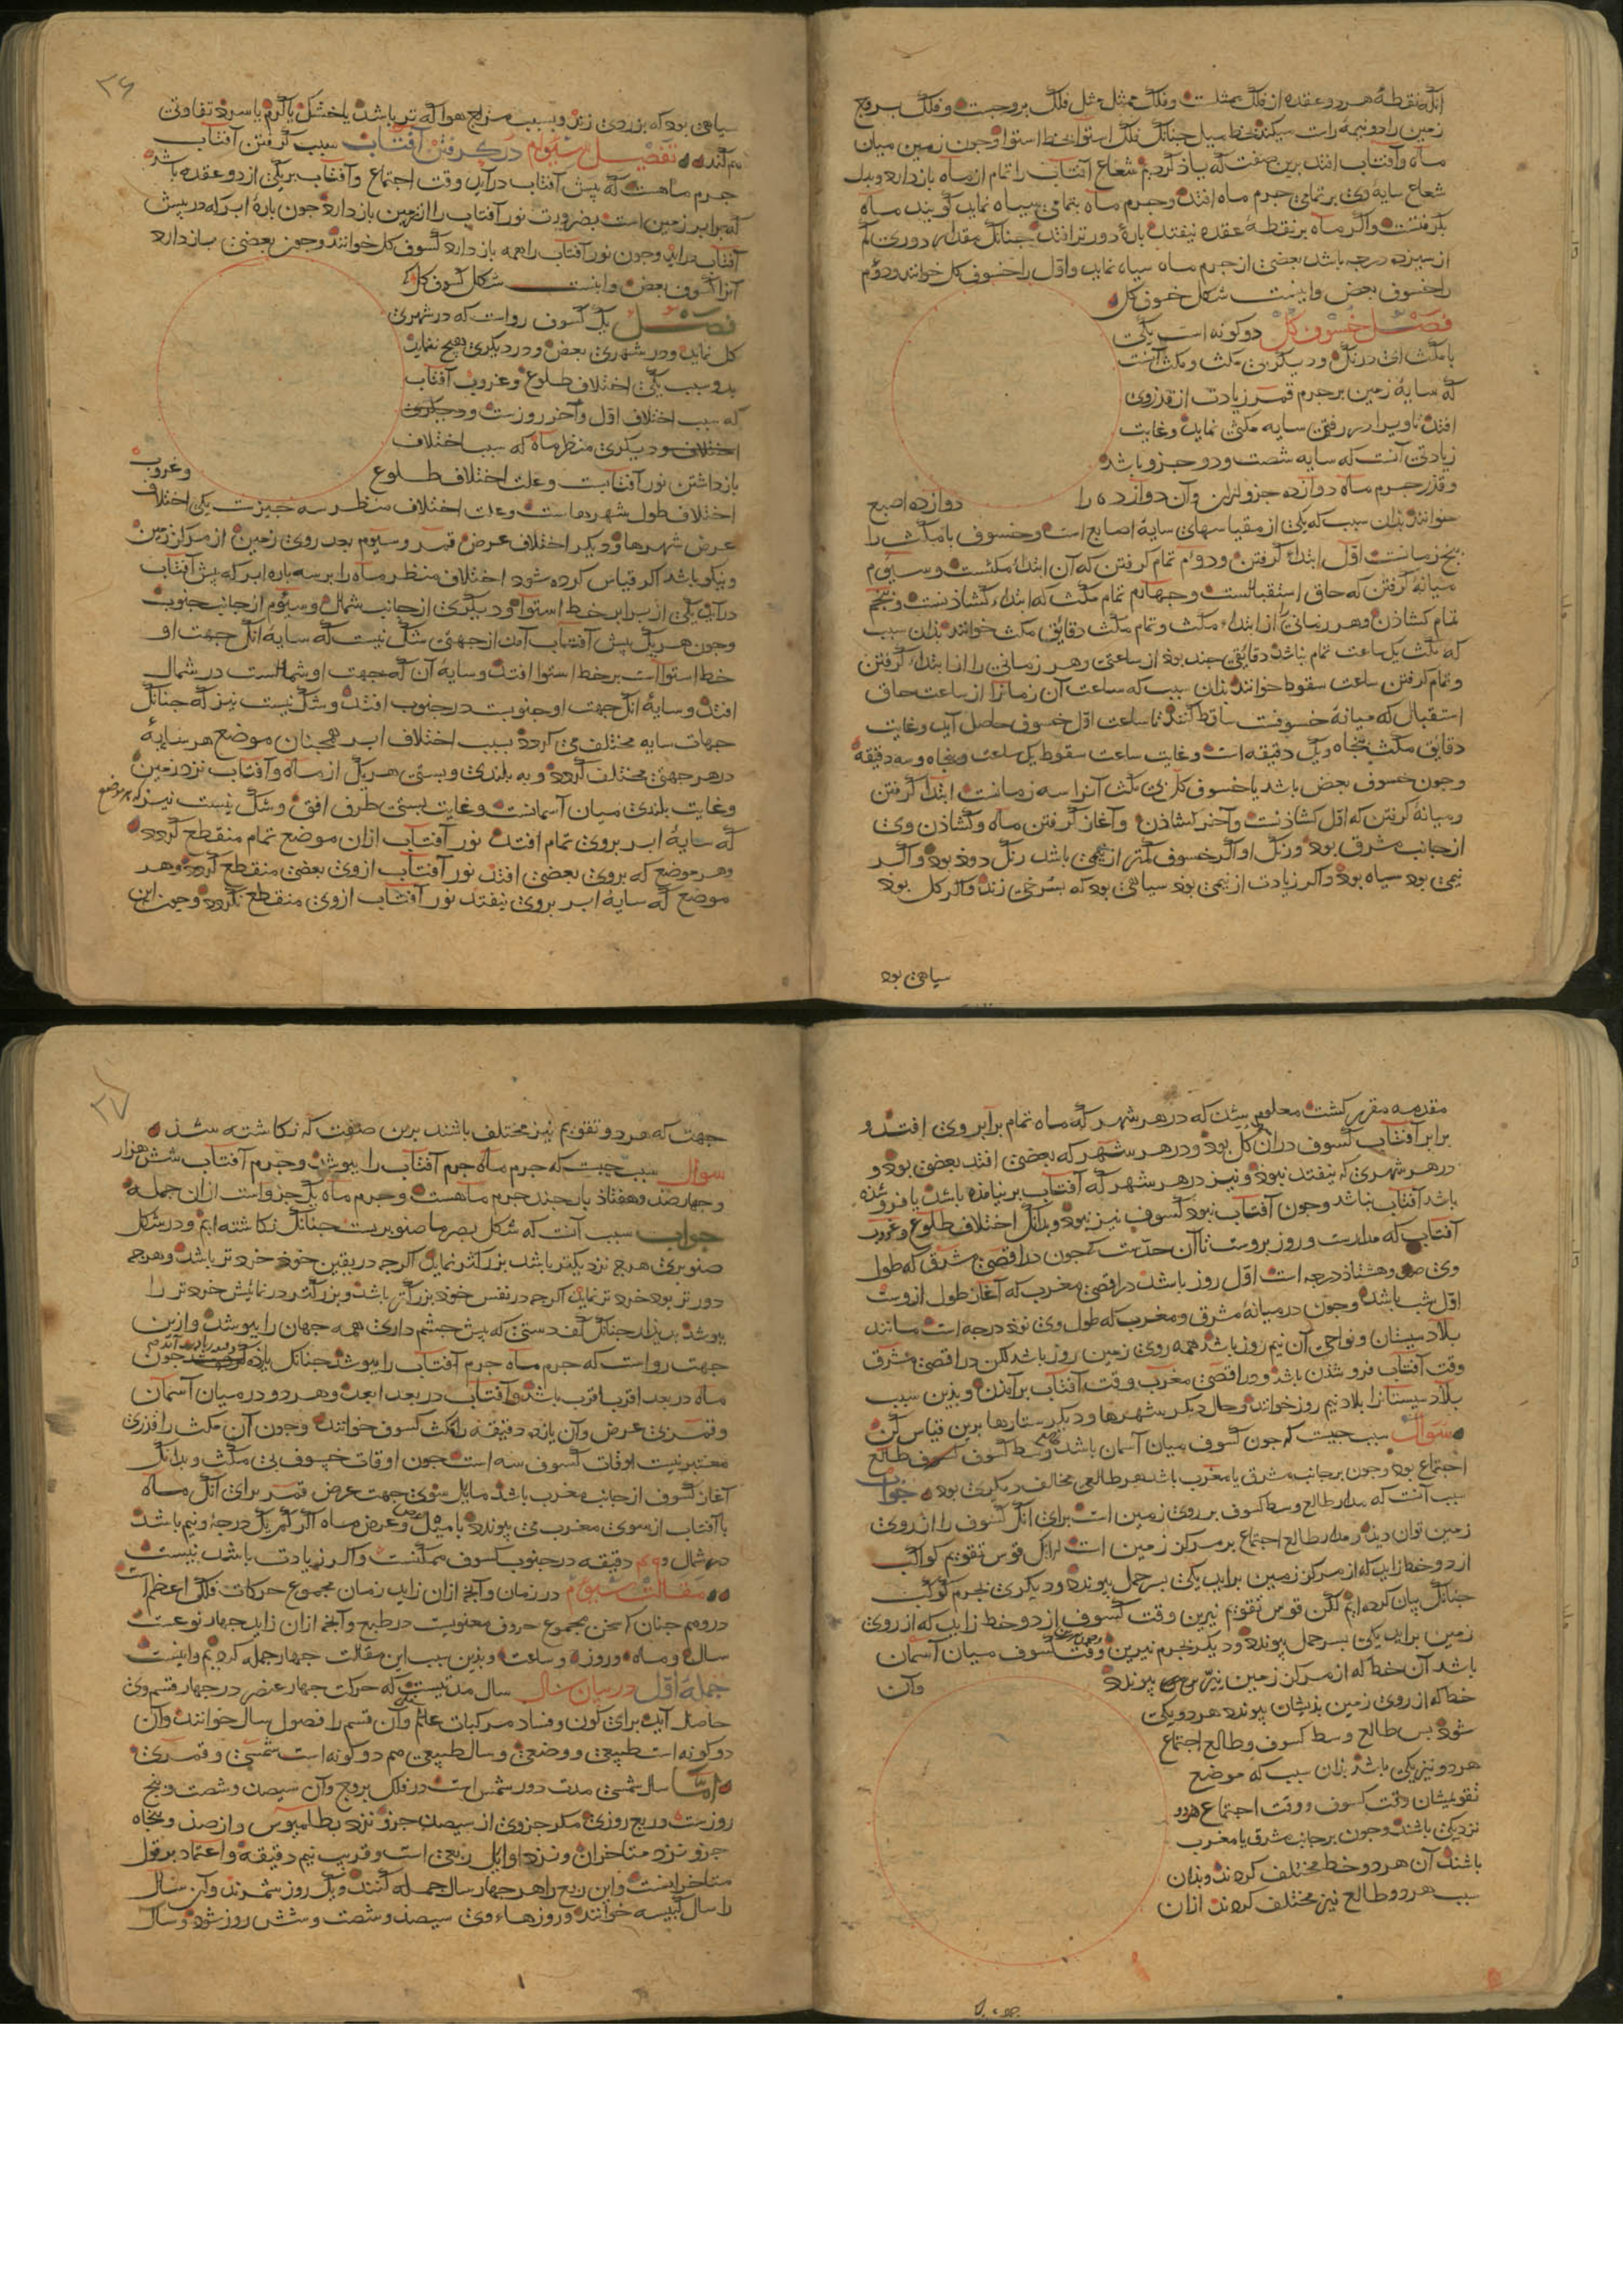 انک نقطهٔ هر دو عقده از فلک ممثلست و فلک ممثل مثل فلک بروجست و فلک بروج
زمین را دو نیمهٔ راست میکند بخط میل چنانک فلک استوا بخط استوا و چون زمین میان
ماه و آفتاب افتد برین صفت که یاذ کردیم شعاع آفتاب را تمام از ماه باز دارد و بدل
شعاع سایهٔ وی بر تمامی جرم ماه افتد و جرم ماه بتمامی سیاه نماید کویند ماه
بکرفتست و اکر ماه بر نقطهٔ عقده نیفتد بارهٔ دورتر افتد چنانک مقدار دوری کم
از سیزده درجه باشد بعضی از جرم ماه سیاه نماید و اول را خسوف کل خوانند و دوم
را خسوف بعض و اینست شکل خسوف کل
فصل خسوف کل دو کونه است یکی
با مکث ای درنک و دیکر بی مکث و مکث آنست
که سایهٔ زمین بر جرم قمر زیادت از قدر وی
افتد تا ویرا در رفتن سایه مکثی نماید و غایت
زیادتی آنست که سایه شصت و دو جزو باشد
و قدر جرم ماه دوازده جزو ازان و آن دوازده را دوازده اصبع
خوانند بدان سبب که یکی از مقیاسهای سایهٔ اصابع است و خسوف با مکث را
پنج زمانست اول ابتداء کرفتن و دوم تمام کرفتن که آن ابتداء مکثست و سیوم
میانهٔ کرفتن که حاق استقبالست و چهارم تمام مکث که ابتداء کشاذنست و پنجم
تمام کشاذن و هر زمانی را از ابتداء مکث و تمام مکث دقایق مکث خوانند بدان سبب
که مکث یک ساعت تمام نباشد دقایقی چند بوذ از ساعتی و هر زمانی را از ابتداء کرفتن
و تمام کرفتن ساعت سقوط خوانند بدان سبب که ساعت آن زمانرا از ساعت حاق
استقبال که میانهٔ خسوفست ساقط کنند تا ساعت اول خسوف حاصل آید و غایت
دقایق مکث پنجاه و یک دقیقه است و غایت ساعت سقوط یک ساعت و پنجاه و سه دقیقه
و چون خسوف بعض باشد یا خسوف کل بی مکث آنرا سه زمانست ابتداء کرفتن
و میانهٔ کرفتن که اول کشاذنست و آخر کشاذن و آغاز کرفتن ماه و کشاذن وی
از جانب مشرق بوذ و رنک او اکر خسوف کمتر از نیمی باشد رنک دوذ بوذ و اکر
نیمی بود سیاه بوذ و اکر زیادت از نیمی بوذ سیاهی بود که بسرخی زند و اکر کل بوذ
سیاهی بود
۲۶
سیاهی بود که بزردی زند و بسبب مزاج هوا که تر باشد یا خشک یا کرم یا سرد تفاوتی
هم کند تفصیل سیوم در کرفتن آفتاب سبب کرفتن آفتاب
جرم ماهست که پیش آفتاب درآید وقت اجتماع و آفتاب بر یکی از دو عقده باشد
که برابر زمین است بضرورت نور آفتاب را از زمین باز دارد چون بارهٔ ابر که در پیش
آفتاب دراید و چون نور آفتاب را همه باز دارد کسوف کل خوانند و چون بعضی باز دارد
آنرا کسوف بعض و اینست شکل کسوف کل
فصل یک کسوف رواست که در شهری
کل نماید و در شهری بعض و در دیکری هیچ ننماید
بدو سبب یکی اختلاف طلوع و غروب آفتاب
که سبب اختلاف اول و آخر روزست و دیکری
اختلاف و دیکری منظر ماه که سبب اختلاف
باز داشتن نور آفتابست و علت اختلاف طلوع و غروب
اختلاف طول شهرهاست و علت اختلاف منظر سه چیزست یکی اختلاف
عرض شهرها و دیکر اختلاف عرض قمر و سیوم بعد روی زمین از مرکز زمین
و نیکو باشد اکر قیاس کرده شود اختلاف منظر ماه را بر سه باره ابر که پیش آفتاب
درآید یکی از برابر خط استوا و دیکری از جانب شمال و سیوم از جانب جنوب
و چون هر یک پیش آفتاب آمد از جهتی شک نیست که سایهٔ انک جهت او
خط استوا است بر خط استوا افتد و سایهٔ آن که جهت او شمالست در شمال
افتد و سایهٔ انک جهت او جنوبست در جنوب افتد و شک نیست نیز که چنانک
جهات سایه مختلف می کردد بسبب اختلاف ابر همچنان موضع هر سایهٔ
در هر جهتی مختلف کردد و به بلندی و پستی هر یک از ماه و آفتاب نزد زمین
و غایت بلندی میان آسمانست و غایت پستی طرف افق و شک نیست نیز که هر موضع
که سایهٔ ابر بروی تمام افتد نور آفتاب ازان موضع تمام منقطع کردد
و هر موضع که بروی بعضی افتد نور آفتاب ازوی بعضی منقطع کردد و هر
موضع که سایهٔ ابر بروی نیفتد نور آفتاب ازوی منقطع نکردد و چون این
مقدمه مقرر کشت معلوم شد که در هر شهر که ماه تمام برابر وی افتد و
برابر آفتاب کسوف دران کل بود و در هر شهر که بعضی افتد بعضی بود و
در هر شهری که نیفتد نبوذ و نیز در هر شهر که آفتاب بر نیامده باشد یا فرو شده
باشد آفتاب نباشد و چون آفتاب نبوذ کسوف نیز نبوذ و بدانک اختلاف طلوع و غروب
آفتاب که مدار شب و روز بروست تا آن حدست که چون در اقصی مشرق که طول
وی صد و هشتاذ درجه است اول روز باشد در اقصی مغرب که آغاز طول ازوست
اول شب باشد و چون در میانهٔ مشرق و مغرب که طول وی نوذ درجه است مانند
بلاد سیستان و نواحی آن نیم روز باشد همه روی زمین روز باشد لکن در اقصی مشرق
وقت آفتاب فرو شذن باشد و در اقصی مغرب وقت آفتاب برآمدن و بدین سبب
بلاد سیستانرا بلاد نیم روز خوانند و حال دیکر شهرها و دیکر ستارها برین قیاس کن
سوال سبب چیست که چون کسوف میان آسمان باشد وسط کسوف طالع
اجتماع بود و چون بر جانب مشرق یا مغرب باشد هر طالعی مخالف دیکری بود جواب
سبب آنست که مدار طالع وسط کسوف بر روی زمین است برای انک کسوف را از روی
زمین توان دید و مدار طالع اجتماع بر مرکز زمین است قوس تقویم کواکب
از دو خط زاید که از مرکز زمین براید یکی بسر حمل پیوندد و دیکری بجرم کوکب
چنانک بیان کرده ایم لکن قوس تقویم نیرین وقت کسوف از دو خط زاید که از روی
زمین براید یکی بسر حمل پیوندد و دیکر بجرم نیرین و وقت کسوف میان آسمان
باشد آن خط که از مرکز زمین بنیرین پیوندد و آن
خط که از روی زمین بدیشان پیوندد هر دو یکی
شود پس طالع وسط کسوف و طالع اجتماع
هر دو نیز یکی باشد بدان سبب که موضع
تقویمشان وقت کسوف و وقت اجتماع هر دو
نزد یکی باشد و چون بر جانب مشرق یا مغرب
باشند آن هر دو خط مختلف کردند و بدان
سبب هر دو طالع نیز مختلف کردند ازان
۲۷
جهت که هر دو تقویم نیز مختلف باشند برین صفت که نکاشته شذ
سوال سبب چیست که جرم ماه جرم آفتاب را بپوشد و جرم آفتاب شش هزار
و چهارصد و هفتاذ بار چند جرم ماهست و جرم ماه یک جزو است ازان جمله
جواب سبب آنست که شکل بصر ما صنوبریست چنانک نکاشته ایم و در شکل
صنوبری هرچ نزدیکتر باشد بزرکتر نماید اکرچه در یقین خوذ خردتر باشد و هرچه
دورتر بود خردتر نماید اکرچه در نفس خوذ بزرکتر باشد و بزرکتر در نمایش خردتر را
بپوشد چنانک کف دستی که پیش چشم داری همه جهان را بپوشد و ازین
جهت رواست که جرم ماه جرم آفتاب را بپوشد چنانک چون
ماه در بعد اقرب باشد و آفتاب در بعد ابعد و هر دو در میان آسمان
و قمر بی عرض و آن یازده دقیقه را مکث کسوف خوانند و چون آن مکث را قدری
معتبر نیست اوقات کسوف سه است چون اوقات خسوف بی مکث و بدانک
آغاز کسوف از جانب مغرب باشد مایل سوی جهت عرض قمر برای انک ماه
با آفتاب از سوی مغرب می پیوندد و عرض ماه اکر کم یک درجه و نیم باشد
در شمال و دقیقه در جنوب کسوف ممکنست و اکر زیادت باشد نیست
مقالت سیوم در زمان و آنچ ازان زاید زمان مجموع حرکات فلک اعظم است
در وهم چنان که سخن مجموع حروف معنویست در طبع و آنچ ازان زاید چهار نوعست
سال و ماه و روز و ساعت و بدین سبب این مقالت چهار جمله کردیم و اینست
جملهٔ اول در بیان سال سال مدتیست که حرکت چهار عنصر در چهار قسم وی
حاصل آید برای کون و فساد مرکبات عالم و آن قسم را فصول سال خوانند و آن
دو کونه است طبیعی و وضعی و سال طبیعی هم دو کونه است شمسی و قمری
اما سال شمسی مدت دور شمس است در فلک بروج و آن سیصد و شصت و پنج
روزست و ربع روزی مکر جزوی از سیصد جزو نزد بطلمیوس و از صذ و پنجاه
جزو نزد متاخران و نزد اوایل ربعی است و قریب نیم دقیقه و اعتماد بر قول
متاخرانست و این ربع را هر چهار سال جمله کنند و یک روز شمرند و آن سال
را سال کبیسه خوانند و روزهاء وی سیصذ و شصت و شش روز شوذ و سال